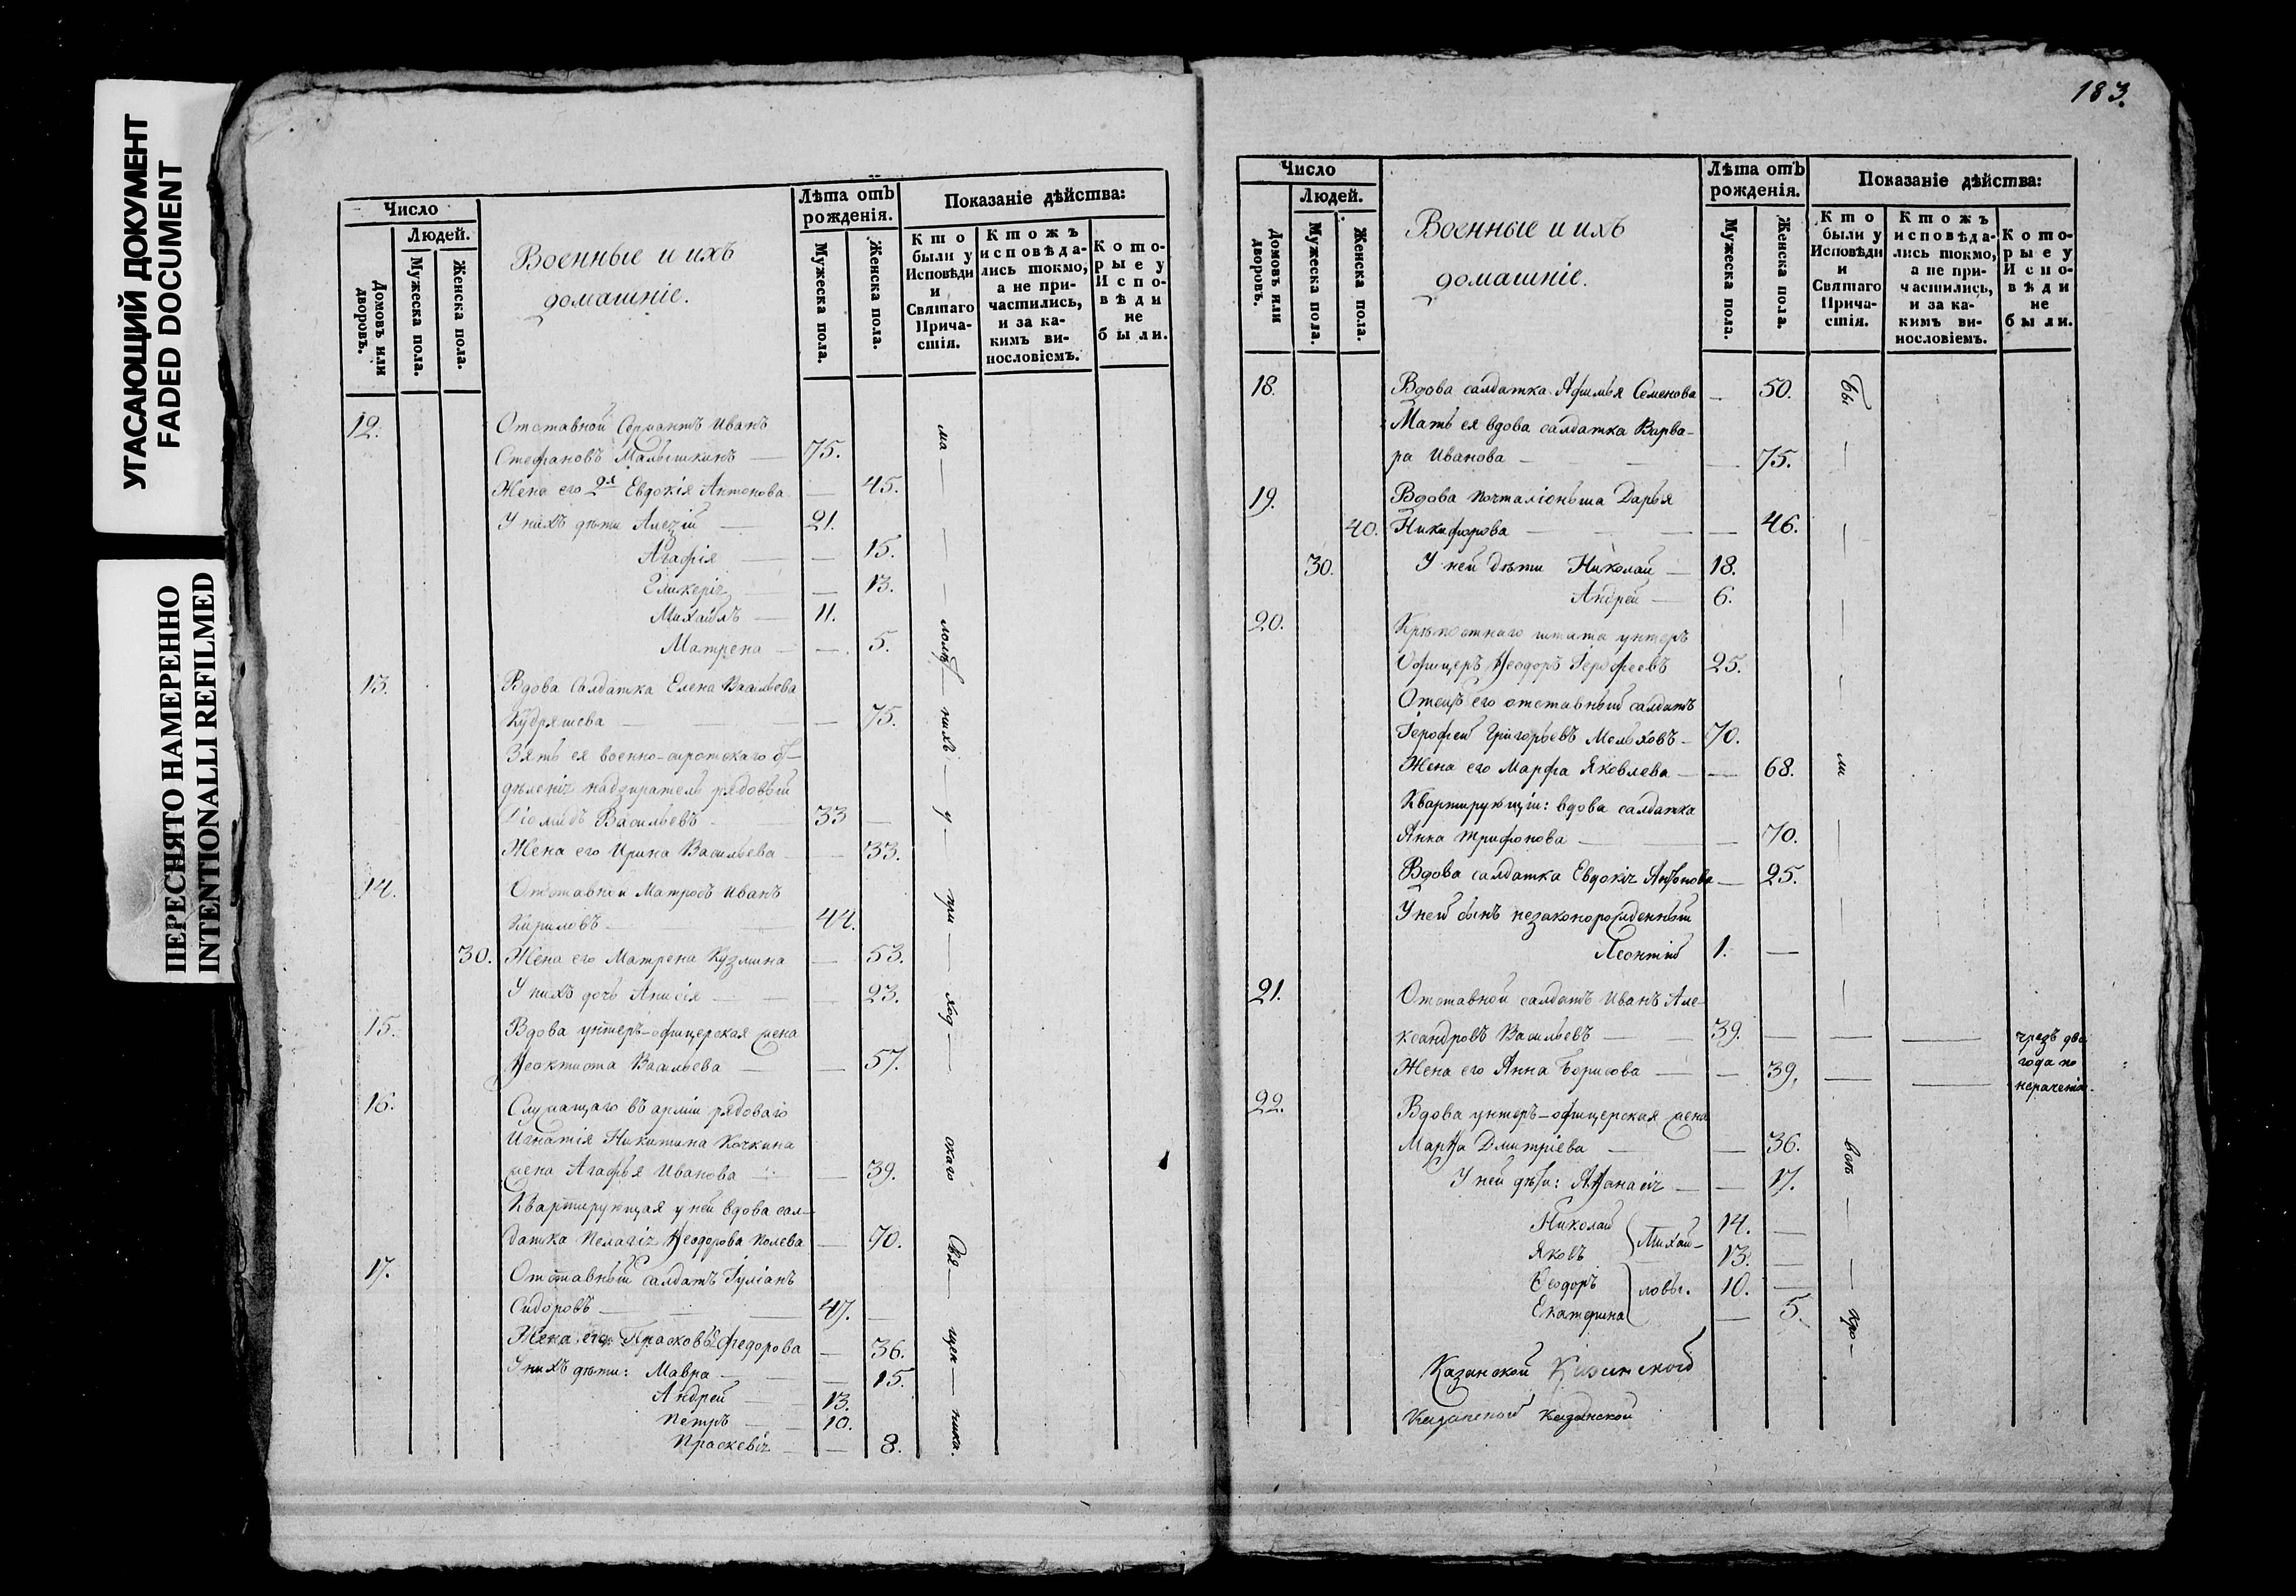 УГАСАЮЩИЙ ДОКУМЕНТ
FADED DOCUMENT
ПЕРЕСНЯТО НАМЕРЕННО
INTENTIONALLI REFILMED
Число
Людей.
Домовъ или дворовъ.
Мужеска пола.
Женска пола.
Военные и ихъ
домашніе.
Лѣта отъ рожденія.
Мужеска пола.
Женска пола.
Показаніе дѣйства:
Кто были у Исповѣди и Святаго Причастія.
Ктожъ исповѣдались токмо, а не причастились, и за какимъ винословіемъ.
Которые у Исповѣди не были.
12. Отставной Сержантъ Иванъ
Стефановъ Малышкинъ — 75.
Жена его 2я Евдокія Антонова — 45.
У нихъ дѣти Алезій — 21.
Агафія — — 15.
Гликеріа — — 13.
Михаилъ — 11.
Матрена — — 5.
13. Вдова Салдатка Елена Васильева
Кудряшева — — 75.
Зять ея военно-сиротскаго от-
дѣленіа надзиратель рядовый
Васильевъ — 33 —
Жена его Ирина Васильева — — 33.
14. Отставной Матросъ Иванъ
Кириловъ — — 44.
30. Жена его Матрена Кузмина — 53.
У нихъ дочь Анисія — — 23.
15. Вдова унтеръ-офицерская жена
Ѳеоктиста Васильева — — 57.
16. Служащаго въ арміи рядоваго
Игнатія Никитина Кочкина
жена Агафья Иванова — — 39.
Квартирующая у ней вдова сал-
датка Пелагіа Ѳеодорова Полева — 70.
17. Отставный салдатъ Іуліанъ
Сидоровъ — — 47. —
Жена его Прасковья Федорова — 36.
У нихъ дѣти: Мавра — — 15.
Андрей — 13.
Петръ — 10.
Праскевіа — — 8.
ма — — — — у — при — ход — скаго Свя — щен — ника.
183.
Число
Людей.
Домовъ или дворовъ.
Мужеска пола.
Женска пола.
Военные и ихъ
домашніе.
Лѣта отъ рожденія.
Мужеска пола.
Женска пола.
Показаніе дѣйства:
Кто были у Исповѣди и Святаго Причастія.
Ктожъ исповѣдались токмо, а не причастились, и за какимъ винословіемъ.
Которые у Исповѣди не были.
18. Вдова салдатка Афимья Семенова — 50.
Мать ея вдова салдатка Варва-
ра Иванова — — — 75.
19. Вдова почталіонша Дарья
40. Никифорова — — — — 46.
30. У ней дѣти Николай — 18.
Андрей — 6.
20. Крѣпостнаго штата унтеръ
Офицеръ Ѳеодоръ Герофеевъ 25.
Отецъ его отставный салдатъ
Герофей Григорьевъ Мельховъ — 70.
Жена его Марфа Яковлева — — 68.
Квартирующіи: вдова салдатка
Анна Трифонова — — — 70.
Вдова салдатка Евдокіа Антонова — 25.
У ней сынъ незаконорожденный
Леонтій 1. —
21. Отставной салдатъ Иванъ Але-
ксандровъ Васильевъ — — 39. — — — чрезъ два
года по
нераченію.
Жена его Анна Борисова — — 39. — —
22. Вдова унтеръ-офицерская жена
Марѳа Дмитріева — — 36.
У ней дѣти: Аѳанасіа — — 17.
Николай 14. —
Михай-
Яковъ 13. —
Ѳеодоръ 10. —
ловы.
Екатерина — 5.
Казанской
Казанской Казанской
бы — — — — — ли — — — — вст — — Кро —